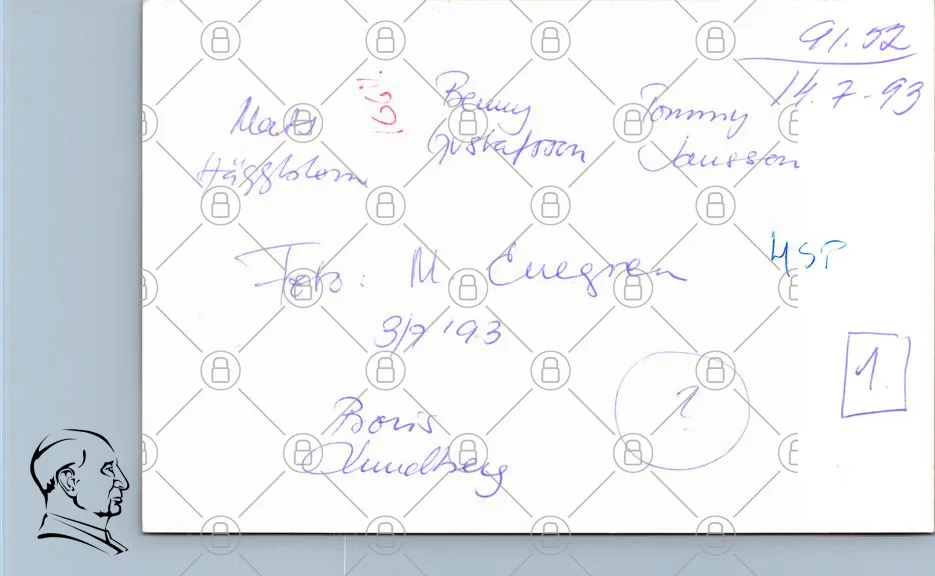 91.52
14.7-93
Mats
Häggblom
Benny
Gustafsson
Tommy
Jansson
Foto: M Enegren
3/7 '93
HSP
1.
?
Boris
Lundberg